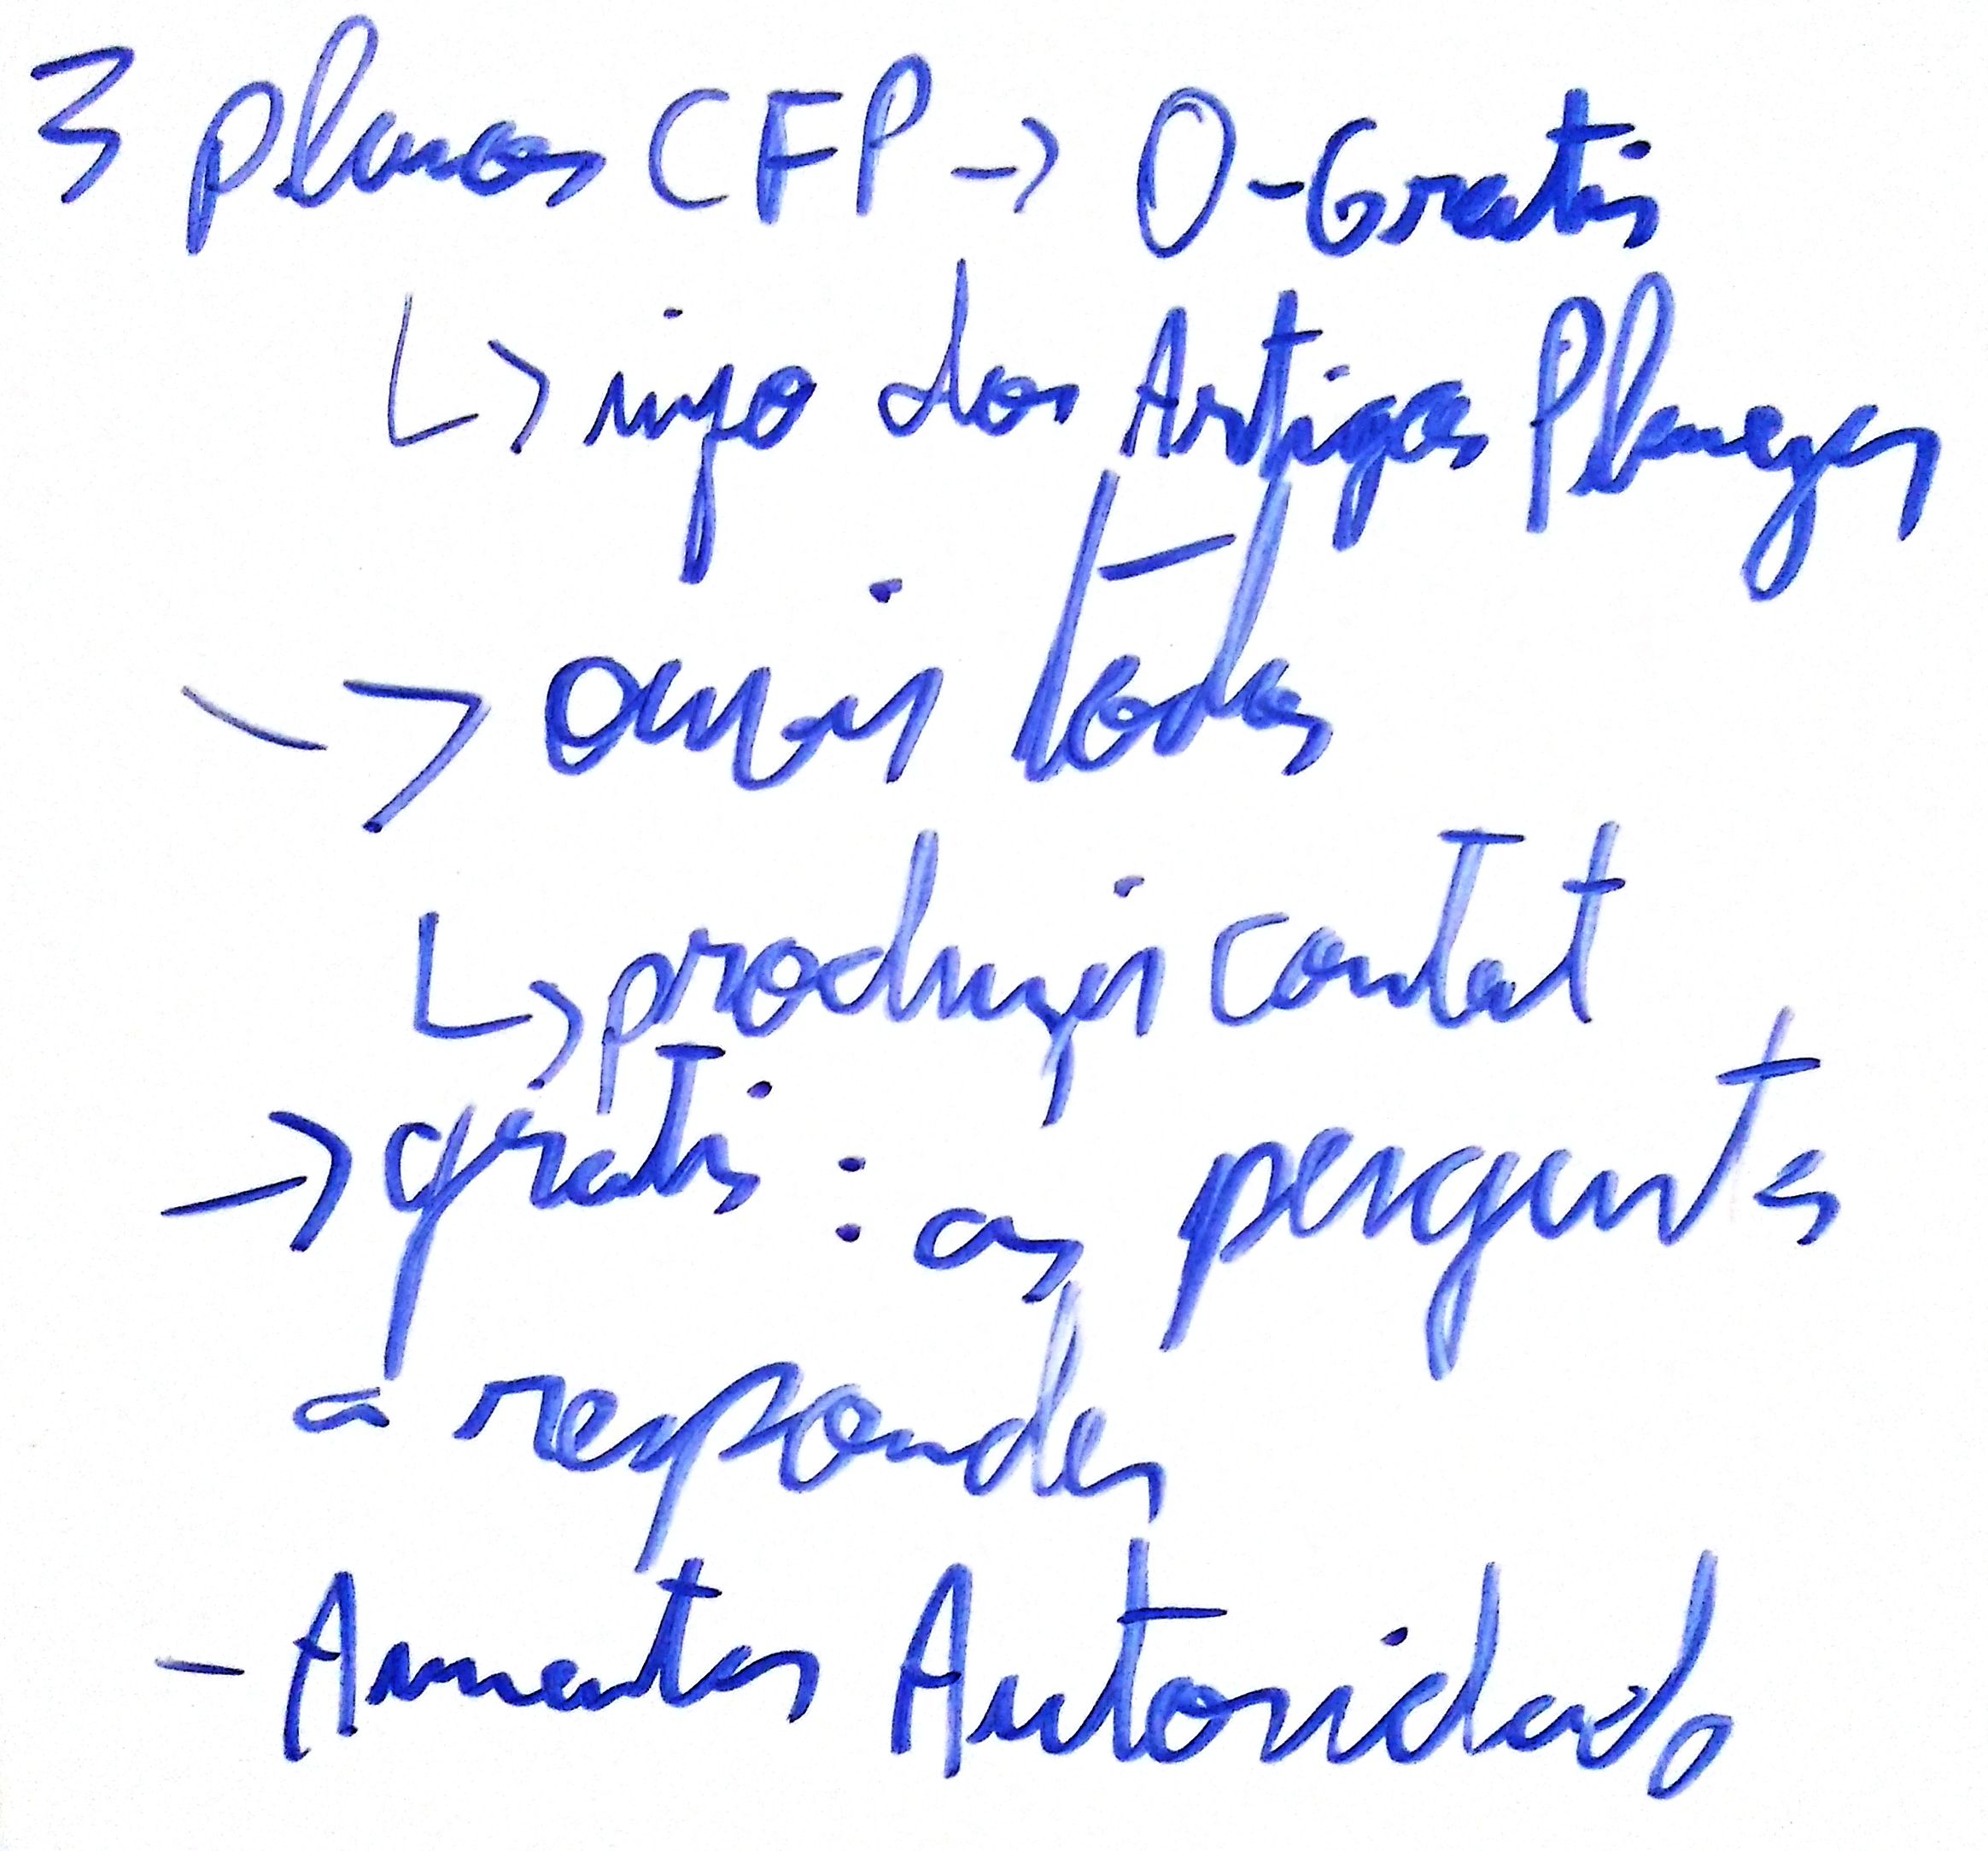 3 planos CFP -> 0-Gratis
↳ info dos Artigos Planejar
-> ouvir todos
↳ produzir contat
-> gratis : as perguntas
a responder
- Aumentar Autoridade